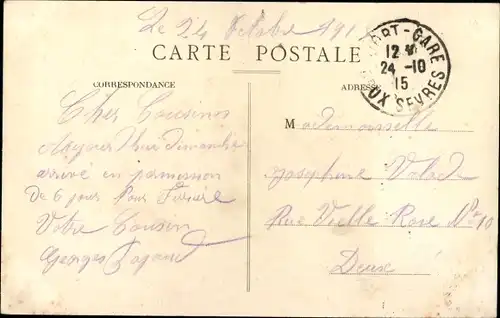 Le 24 Octobre 191
CARTE POSTALE
RT-GARE
12
24 -10
15
UX SEVRES
CORRESPONDANCE
ADRESSE
Cher Cousines
Aujourd'hui dimanche
arrivé en permission
De 6 jours Pour
Votre Cousin
Georges
Mademoiselle
Josephine
Rue Vielle Rose No 10
Deux